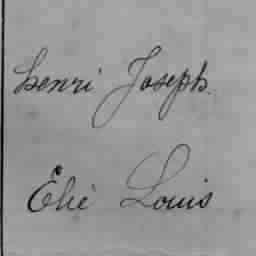 henri Joseph
Elié Louis